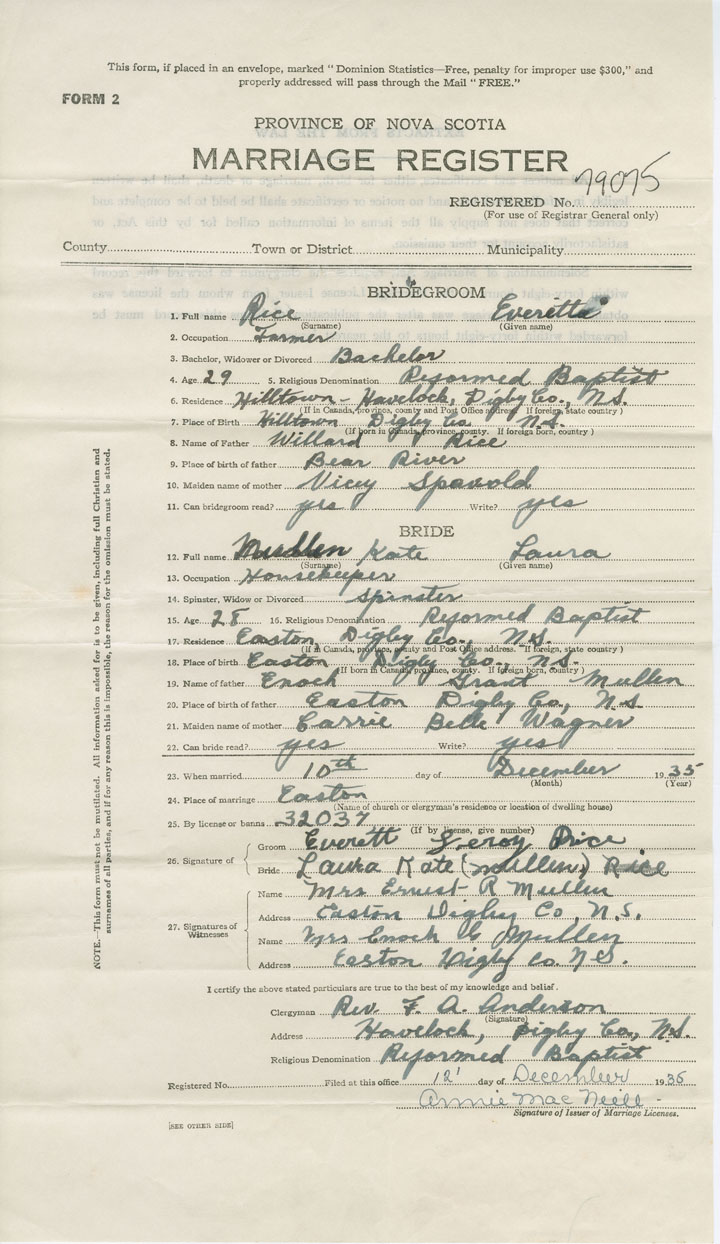 This form, if placed in an envelope, marked "Dominion Statistics—Free, penalty for improper use $300," and
properly addressed will pass through the Mail "FREE."
FORM 2
PROVINCE OF NOVA SCOTIA
MARRIAGE REGISTER
REGISTERED No. 79075
(For use of Registrar General only)
County Town or District Municipality
BRIDEGROOM
1. Full name Rice Everette
(Surname) (Given name)
2. Occupation Farmer
3. Bachelor, Widower or Divorced Bachelor
4. Age 29 5. Religious Denomination Reformed Baptist
6. Residence Hilltown - Havelock, Digby Co., N.S.
(If in Canada, province, county and Post Office address. If foreign, state country)
7. Place of Birth Hilltown Digby Co N.S.
(If born in Canada, province, county. If foreign born, country)
8. Name of Father Willard Rice
9. Place of birth of father Bear River
10. Maiden name of mother Vicey Spavold
11. Can bridegroom read? yes Write? yes
BRIDE
12. Full name Mullen Kate Laura
(Surname) (Given name)
13. Occupation Housekeeper
14. Spinster, Widow or Divorced Spinster
15. Age 28 16. Religious Denomination Reformed Baptist
17. Residence Easton, Digby Co., N.S.
(If in Canada, province, county and Post Office address. If foreign, state country)
18. Place of birth Easton Digby Co., N.S.
(If born in Canada, province, county. If foreign born, country)
19. Name of father Enoch Grant Mullen
20. Place of birth of father Easton Digby Co, N.S
21. Maiden name of mother Carrie Belle Wagner
22. Can bride read? yes Write? yes
23. When married 10th day of December 1935
(Month) (Year)
24. Place of marriage Easton
(Name of church or clergyman's residence or location of dwelling house)
25. By license or banns 32037
(If by license, give number)
26. Signature of Groom Everett Leroy Rice
Bride Laura Kate (Mullen) Rice
27. Signatures of Witnesses
Name Mrs Ernest R Mullen
Address Easton Digby Co, N.S.
Name Mrs Enoch G Mullen
Address Easton Digby Co. N.S.
I certify the above stated particulars are true to the best of my knowledge and belief.
Clergyman Rev. F. A. Anderson
(Signature)
Address Havelock, Digby Co, N.S.
Religious Denomination Reformed Baptist
Registered No. Filed at this office 12 day of December 1935
Annie Mac Neill
Signature of Issuer of Marriage Licenses.
[SEE OTHER SIDE]
NOTE.—This form must not be mutilated. All information asked for is to be given, including full Christian and
surnames of all parties, and if for any reason this is impossible, the reason for the omission must be stated.